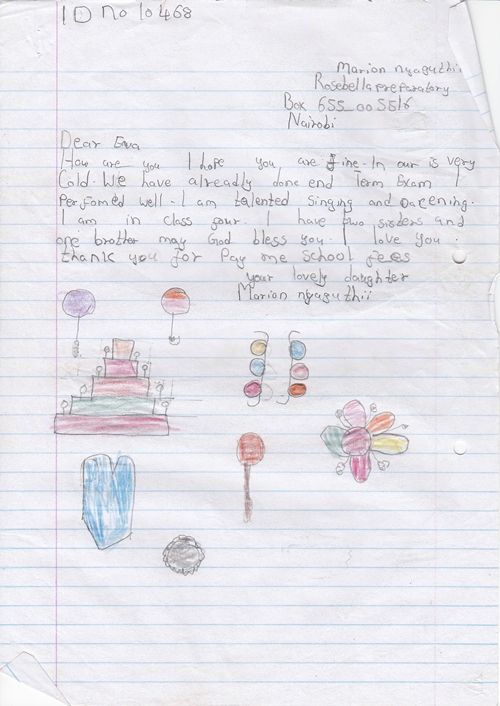 ID No 10468
Marion nyaguthii
Rosebella preparatory
Box 655_00 5516
Nairobi
Dear Eva
How are you I hope you are fine. In our is very
Cold. We have alreadly done end Term Exam I
Perfomed well. I am talented singing and Dacening.
I am in class four. I have two sisters and
one brother may God bless you. I love you.
thank you for Pay me school fees
your lovely daughter
Marion nyaguthii